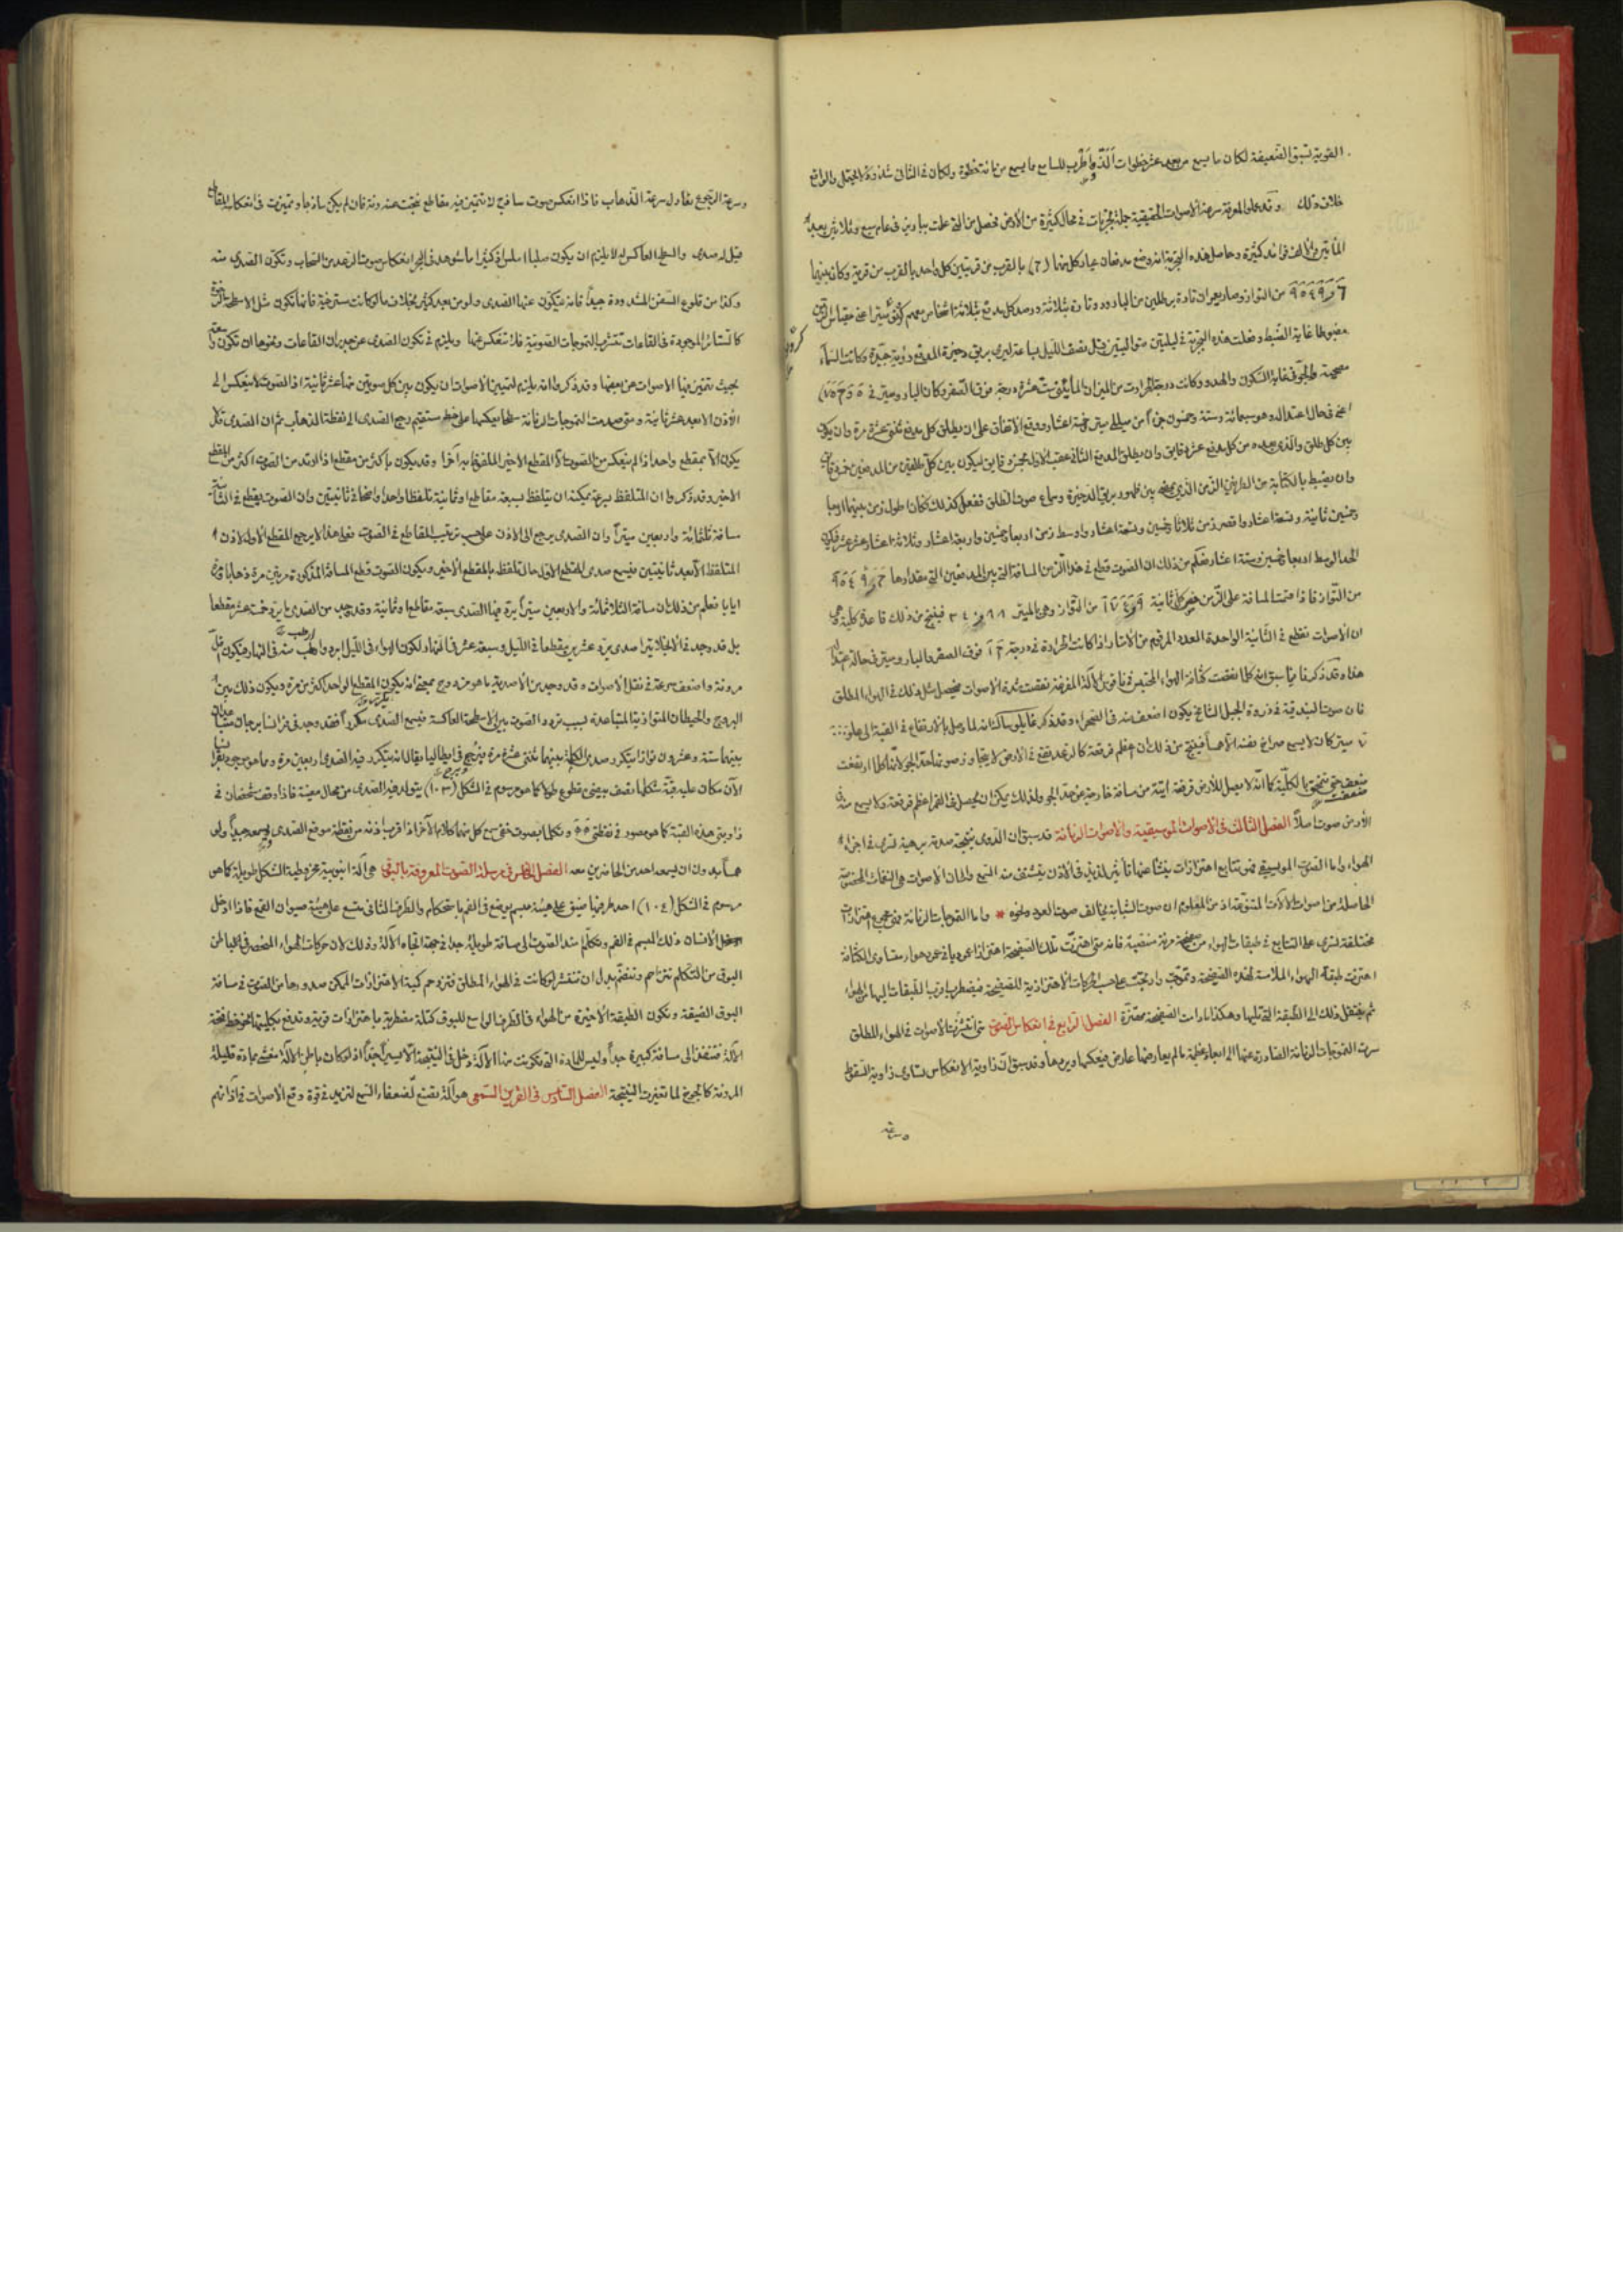 القوية تسبق الضعيفة لكان ما يسمع من بعد عشر خطوات ألذ وأطرب للسامع مما يسمع من مائة خطوة ولكان في الثاني
خلاف ذلك وقد عملوا لمعرفة سرعة الأصوات الحقيقية جملة تجربات في محال كثيرة من الأرض فحصل من التي عملت بباريز في عام سبع وثلاثين بعد
المأتين والألف فوائد كثيرة وحاصل هذه التجربة انه وضع مدفعان عيار كل منهما (٦) بالقرب من قريتين كل واحد بالقرب من قرية وكان بينهما
من التواز وصار يعمران تارة برطلين من البارود وتارة بثلاثة ورصد كل مدفع ثلاثة اشخاص معهم
مضبوطا غاية الضبط وفعلت هذه التجربة في ليلتين متواليتين قبل نصف الليل بساعة ليرى بريق ذخيرة المدفع رؤية جيدة وكانت السماء
مصحية والجو في غاية السكون والهدو وكانت درجة الحرارة من الميزان المأيني ست عشرة درجة فوق الصفر وكان البارومتر في
اعني في حال اعتداله وهو سبعمائة وستة وخمسون جزأ من ميللي ميتر وخمسة اعشار ووقع الاتفاق على ان يطلق كل مدفع ثنتي عشرة مرة وان يكون
بين كل طلق والذي بعده من كل مدفع عشر دقايق وان يطلق المدفع الثاني عقب الاول بخمس دقايق ليكون بين كل طلقين من المدفعين خمس دقايق
وان يضبط بالكتابة من الطرفين الزمن الذي يمضي بين ظهور بريق الذخيرة وسماع صوت الطلق ففعل كذلك فكان اطول زمن بينهما اربعا
وخمسين ثانية وتسعة اعشار واقصر زمن ثلاثا وخمسين وتسعة اعشار واوسط زمن اربعا وخمسين واربعة اعشار وثلاثة اعشار عشر فيكون
الحد الوسط اربعا وخمسين وستة اعشار فعلم من ذلك ان الصوت قطع في هذا الزمن المسافة التي بين المدفعين التي مقدارها
من التواز فاذا قسمت المسافة على الزمن خص كل ثانية من التواز وهي بالميتر فينتج من ذلك قاعدة كلية هي
ان الاصوات تقطع في الثانية الواحدة العدد المرقوم من الامتار اذا كانت الحرارة في درجة فوق الصفر والبارومتر في حالة
هذا وقد ذكرنا فيما سبق انه كلما نقصت كثافة الهواء المحتبس في ناقوس الآلة المفرغة نقصت شدة الاصوات فيحصل مثل ذلك في الهواء المطلق
فان صوت البندقية في ذروة الجبل الشامخ يكون اضعف منه في الصحراء وقد ذكر غايلوساك انه لما وصل بالارتفاع في القبة الى علو
ميتر كان لا يسمع صراخ نفسه الا همسا فينتج من ذلك ان اعظم فرقعة كالرعد تقع في الارض لا يتجاوز صوتها حد الجو لانه كلما ارتفعت
ضعفت حتى تمتحق بالكلية كما انه لا يصل للأرض فرقعة آتية من مسافة خارجة عن حد الجو ولذلك يمكن ان يحصل في القمر اعظم فرقعة ولا يسمع منه في
الأرض صوت اصلا الفصل الثالث في الاصوات الموسيقية والاصوات الرنانة قد سبق ان الدوي نتيجة صدمة برهية تسري في اجزاء
الهواء واما الصوت الموسيقي فهو تتابع اهتزازات ينشأ عنها تأثير لذيذ في الأذن يتشنف منه السمع والحان الأصوات هي النغمات المخصوصة
الحاصلة من اصوات الآلات المتنوعة اذ من المعلوم ان صوت الشبابة يخالف صوت العود ونحوه * واما التموجات الرنانة فهي جميع اهتزازات
مختلفة تسري على التتابع في طبقات الهواء من صفيحة مرنة منتصبة فانه متى اهتزت تلك الصفيحة اهتزازا عموديا في عمود هواء متساوي الكثافة
اهتزت طبقة الهواء الملامسة لهذه الصفيحة وتموجت وارتجت على حسب الحركات الاهتزازية للصفيحة فيضطرب اقرب الطبقات اليها من الهواء
ثم ينتقل ذلك الى الطبقة التي تليها وهكذا ما دامت الصفيحة مهتزة الفصل الرابع في انعكاس الصوت متى انتشرت الأصوات في الهواء المطلق
سرت التموجات الرنانة الصادرة عنها الى ابعاد عظيمة ما لم يعارضها عارض فيعكسها ويردها وقد سبق ان زاوية الانعكاس تساوي زاوية السقوط
وسرعة
وسرعة الرجوع تعادل سرعة الذهاب فاذا انعكس صوت ساذج لا تتميز فيه مقاطع نتجت عنه رنة فان لم يكن ساذجا وتميزت في انعكاسه المقاطع
قيل له صدى والسطح العاكس له لا يلزم ان يكون صلبا املس فكثيرا ما شوهد في البحر انعكاس صوت الرعد من السحاب وتكون الصدى منه
وكذا من قلوع السفن المشدودة جيدا فانه يتكون عنها الصدى ولو من بعد كثير بخلاف ما لو كانت مسترخية فانها تكون مثل الاسطحة الرخوة
كالستائر الموجودة في القاعات تتشرب التموجات الصوتية فلا تنعكس عنها ويلزم في تكون الصدى عن جدران القاعات ونحوها ان تكون واسعة
بحيث تتميز فيها الاصوات عن بعضها وقد ذكروا انه يلزم لتمييز الاصوات ان يكون بين كل صوتين خمسا عشر ثانية اذ الصوت لا ينعكس الى
الأذن الا بعد عشر ثانية ومتى صدمت التموجات الرنانة سطحا يعكسها على خط مستقيم رجع الصدى الى نقطة الذهاب ثم ان الصدى قد لا
يكون الا بمقطع واحد اذا لم ينعكس من الصوت الا المقطع الاخير الملفوظ به آخرا وقد يكون بأكثر من مقطع اذا ارتد من الصوت اكثر من المقطع
الاخير وقد ذكروا ان المتلفظ بسرعة يمكنه ان يتلفظ بسبعة مقاطع او ثمانية تلفظا واحدا واضحا في ثانيتين وان الصوت يقطع في الثانية
مسافة ثلثمائة واربعين ميترا وان الصدى يرجع الى الاذن على حسب ترتيب المقاطع في الصوت فعلى هذا لا يرجع المقطع الأول لأذن
المتلفظ الا بعد ثانيتين فيسمع صدى المقطع الاول حال تلفظه بالمقطع الأخير ويكون الصوت قطع المسافة المذكورة مرتين مرة ذهابا ومرة
ايابا فعلم من ذلك ان مسافة الثلاثمائة والاربعين ميترا يرد فيها الصدى سبعة مقاطع او ثمانية وقد وجد من الصدى ما يرد خمسة عشر مقطعا
بل قد وجد في الانجلاتيرا صدى يرد عشرين مقطعا في الليل وسبعة عشر في النهار لكون الهواء في الليل ابرد وارطب منه في النهار فيكون اقل
مرونة واضعف سرعة في نقل الاصوات وقد وجد من الأصدية ما هو مزدوج بمعنى انه يكون المقطع الواحد اكثر من مرة ويكون ذلك بين
البروج والحيطان المتوازية المتباعدة بسبب تردد الصوت بين الأسطحة العاكسة فيسمع الصدى متكررا فقد وجد في فرانسا برجان متباعدان
بينهما ستة وعشرون توازا يتكرر صدى الكلمة بينهما ثنتي عشرة مرة وبرج في ايطاليا يقال انه يتكرر فيه الصدى اربعين مرة ومما هو موجود بفرانسا
الآن مكان عليه قبة شكلها نصف بيضي مقطوع طولا كما هو مرسوم في الشكل (١٠٣) يتولد فيه الصدى من محال معينة فاذا وقف شخصان في
زاويتي هذه القبة كما هو مصور في نقطتي ٥ ٥ وتكلما بصوت خفي سمع كل منهما كلام الآخر اذا قرب اذنه من نقطة موقع الصدى ويسمعه جيدا ولو
همسا بدون ان يسمعه احد من الحاضرين معه الفصل الخامس في مرسلة الصوت المعروفة بالبوق هي آلة انبوبية مخروطية الشكل طويلة كما هو
مرسوم في الشكل (١٠٤) احد طرفيها ضيق على هيئة مبسم يوضع في الفم باستحكام والطرف الثاني متسع على هيئة صيوان القمع فاذا ادخل
الانسان ذلك المبسم في الفم وتكلم نفذ الصوت الى مسافة طويلة جدا في جهة اتجاه الآلة وذلك لان حركات الهواء المنحصر في باطن
البوق من التكلم تتزاحم وتنضم بدل ان تنتشر لو كانت في الهواء المطلق فتزدحم كمية الاهتزازات الممكن صدورها من الصوت في مسافة
البوق الضيقة وتكون الطبقة الأخيرة من الهواء في الطرف الواسع للبوق كتلة مضطربة باهتزازات قوية وتدفع بكليتها نحو خط فتحة
الآلة فتنفذ الى مسافة كبيرة جدا وليس للمادة التي تكونت منها الآلة دخل في النتيجة الا يسيرا جدا اذ لو كان باطن الآلة مغشى بمادة قليلة
المرونة كالجوخ لما تغيرت النتيجة الفصل السادس في القرين السمعي هو آلة تصنع لضعفاء السمع لتزيد في قوة وقع الأصوات في آذانهم